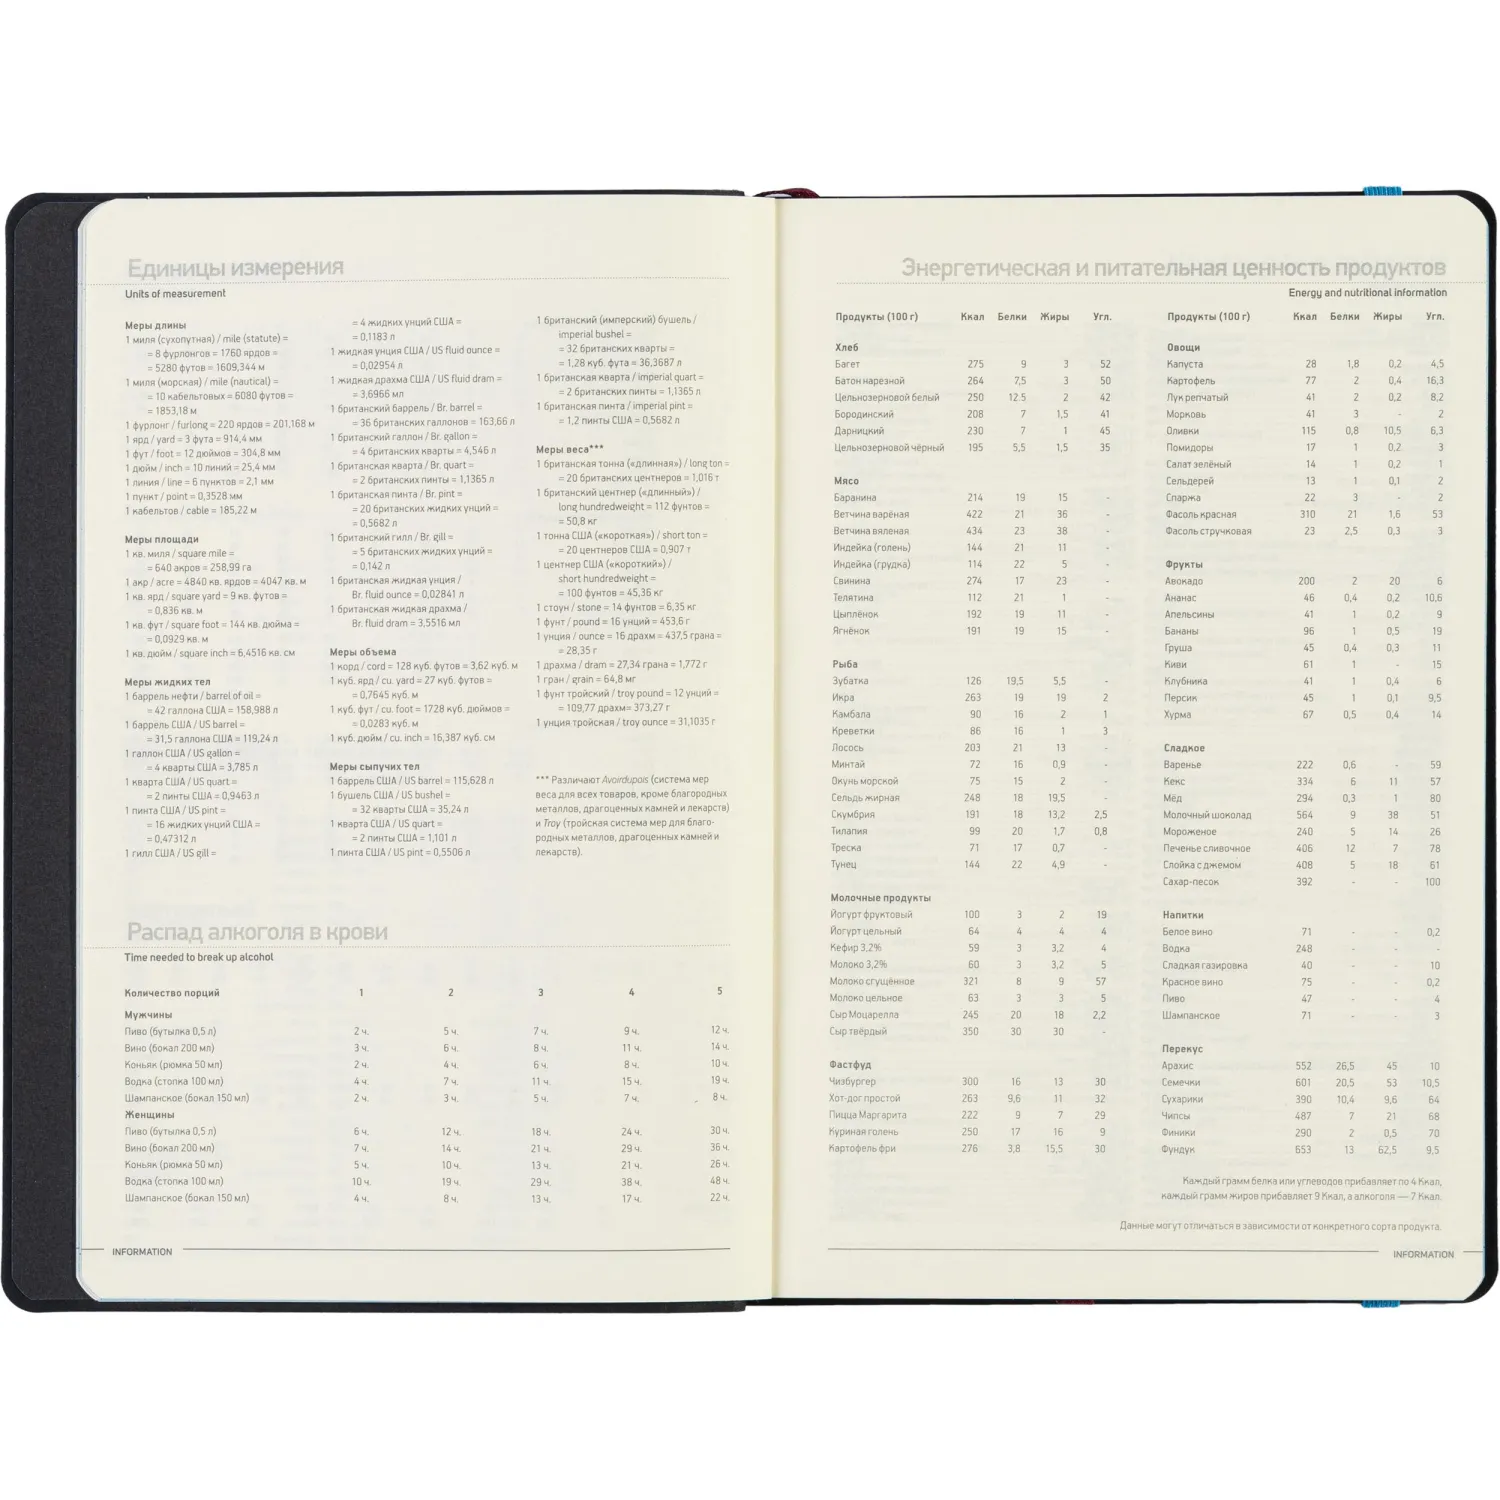 Единицы измерения
Units of measurement
Меры длины
1 миля (сухопутная) / mile (statute) =
= 8 фурлонгов = 1760 ярдов =
= 5280 футов = 1609,344 м
1 миля (морская) / mile (nautical) =
= 10 кабельтовых = 6080 футов =
= 1853,18 м
1 фурлонг / furlong = 220 ярдов = 201,168 м
1 ярд / yard = 3 фута = 914,4 мм
1 фут / foot = 12 дюймов = 304,8 мм
1 дюйм / inch = 10 линий = 25,4 мм
1 линия / line = 6 пунктов = 2,1 мм
1 пункт / point = 0,3528 мм
1 кабельтов / cable = 185,22 м
Меры площади
1 кв. миля / square mile =
= 640 акров = 258,99 га
1 акр / acre = 4840 кв. ярдов = 4047 кв. м
1 кв. ярд / square yard = 9 кв. футов =
= 0,836 кв. м
1 кв. фут / square foot = 144 кв. дюйма =
= 0,0929 кв. м
1 кв. дюйм / square inch = 6,4516 кв. см
Меры жидких тел
1 баррель нефти / barrel of oil =
= 42 галлона США = 158,988 л
1 баррель США / US barrel =
= 31,5 галлона США = 119,24 л
1 галлон США / US gallon =
= 4 кварты США = 3,785 л
1 кварта США / US quart =
= 2 пинты США = 0,9463 л
1 пинта США / US pint =
= 16 жидких унций США =
= 0,47312 л
1 гилл США / US gill =
= 4 жидких унций США =
= 0,1183 л
1 жидкая унция США / US fluid ounce =
= 0,02954 л
1 жидкая драхма США / US fluid dram =
= 3,6966 мл
1 британский баррель / Br. barrel =
= 36 британских галлонов = 163,66 л
1 британский галлон / Br. gallon =
= 4 британских кварты = 4,546 л
1 британская кварта / Br. quart =
= 2 британских пинты = 1,1365 л
1 британская пинта / Br. pint =
= 20 британских жидких унций =
= 0,5682 л
1 британский гилл / Br. gill =
= 5 британских жидких унций =
= 0,142 л
1 британская жидкая унция /
Br. fluid ounce = 0,02841 л
1 британская жидкая драхма /
Br. fluid dram = 3,5516 мл
Меры объема
1 корд / cord = 128 куб. футов = 3,62 куб. м
1 куб. ярд / cu. yard = 27 куб. футов =
= 0,7645 куб. м
1 куб. фут / cu. foot = 1728 куб. дюймов =
= 0,0283 куб. м
1 куб. дюйм / cu. inch = 16,387 куб. см
Меры сыпучих тел
1 баррель США / US barrel = 115,628 л
1 бушель США / US bushel =
= 32 кварты США = 35,24 л
1 кварта США / US quart =
= 2 пинты США = 1,101 л
1 пинта США / US pint = 0,5506 л
1 британский (имперский) бушель /
imperial bushel =
= 32 британских кварты =
= 1,28 куб. фута = 36,3687 л
1 британская кварта / imperial quart =
= 2 британских пинты = 1,1365 л
1 британская пинта / imperial pint =
= 1,2 пинты США = 0,5682 л
Меры веса***
1 британская тонна («длинная») / long ton =
= 20 британских центнеров = 1,016 т
1 британский центнер («длинный») /
long hundredweight = 112 фунтов =
= 50,8 кг
1 тонна США («короткая») / short ton =
= 20 центнеров США = 0,907 т
1 центнер США («короткий») /
short hundredweight =
= 100 фунтов = 45,36 кг
1 стоун / stone = 14 фунтов = 6,35 кг
1 фунт / pound = 16 унций = 453,6 г
1 унция / ounce = 16 драхм = 437,5 грана =
= 28,35 г
1 драхма / dram = 27,34 грана = 1,772 г
1 гран / grain = 64,8 мг
1 фунт тройский / troy pound = 12 унций =
= 109,77 драхм= 373,27 г
1 унция тройская / troy ounce = 31,1035 г
*** Различают Avoirdupois (система мер
веса для всех товаров, кроме благородных
металлов, драгоценных камней и лекарств)
и Troy (тройская система мер для благо-
родных металлов, драгоценных камней и
лекарств).
Распад алкоголя в крови
Time needed to break up alcohol
Количество порций 1 2 3 4 5
Мужчины
Пиво (бутылка 0,5 л) 2 ч. 5 ч. 7 ч. 9 ч. 12 ч.
Вино (бокал 200 мл) 3 ч. 6 ч. 8 ч. 11 ч. 14 ч.
Коньяк (рюмка 50 мл) 2 ч. 4 ч. 6 ч. 8 ч. 10 ч.
Водка (стопка 100 мл) 4 ч. 7 ч. 11 ч. 15 ч. 19 ч.
Шампанское (бокал 150 мл) 2 ч. 3 ч. 5 ч. 7 ч. 8 ч.
Женщины
Пиво (бутылка 0,5 л) 6 ч. 12 ч. 18 ч. 24 ч. 30 ч.
Вино (бокал 200 мл) 7 ч. 14 ч. 21 ч. 29 ч. 36 ч.
Коньяк (рюмка 50 мл) 5 ч. 10 ч. 13 ч. 21 ч. 26 ч.
Водка (стопка 100 мл) 10 ч. 19 ч. 29 ч. 38 ч. 48 ч.
Шампанское (бокал 150 мл) 4 ч. 8 ч. 13 ч. 17 ч. 22 ч.
INFORMATION
Энергетическая и питательная ценность продуктов
Energy and nutritional information
Продукты (100 г) Ккал Белки Жиры Угл.
Хлеб
Багет 275 9 3 52
Батон нарезной 264 7,5 3 50
Цельнозерновой белый 250 12.5 2 42
Бородинский 208 7 1,5 41
Дарницкий 230 7 1 45
Цельнозерновой чёрный 195 5,5 1,5 35
Мясо
Баранина 214 19 15 -
Ветчина варёная 422 21 36 -
Ветчина вяленая 434 23 38 -
Индейка (голень) 144 21 11 -
Индейка (грудка) 114 22 5 -
Свинина 274 17 23 -
Телятина 112 21 1 -
Цыплёнок 192 19 11 -
Ягнёнок 191 19 15 -
Рыба
Зубатка 126 19,5 5,5 -
Икра 263 19 19 2
Камбала 90 16 2 1
Креветки 86 16 1 3
Лосось 203 21 13 -
Минтай 72 16 0,9 -
Окунь морской 75 15 2 -
Сельдь жирная 248 18 19,5 -
Скумбрия 191 18 13,2 2,5
Тилапия 99 20 1,7 0,8
Треска 71 17 0,7 -
Тунец 144 22 4,9 -
Молочные продукты
Йогурт фруктовый 100 3 2 19
Йогурт цельный 64 4 4 4
Кефир 3,2% 59 3 3,2 4
Молоко 3,2% 60 3 3,2 5
Молоко сгущённое 321 8 9 57
Молоко цельное 63 3 3 5
Сыр Моцарелла 245 20 18 2,2
Сыр твёрдый 350 30 30 -
Фастфуд
Чизбургер 300 16 13 30
Хот-дог простой 263 9,6 11 32
Пицца Маргарита 222 9 7 29
Куриная голень 250 17 16 9
Картофель фри 276 3,8 15,5 30
Продукты (100 г) Ккал Белки Жиры Угл.
Овощи
Капуста 28 1,8 0,2 4,5
Картофель 77 2 0,4 16,3
Лук репчатый 41 2 0,2 8,2
Морковь 41 3 - 2
Оливки 115 0,8 10,5 6,3
Помидоры 17 1 0,2 3
Салат зелёный 14 1 0,2 1
Сельдерей 13 1 0,1 2
Спаржа 22 3 - 2
Фасоль красная 310 21 1,6 53
Фасоль стручковая 23 2,5 0,3 3
Фрукты
Авокадо 200 2 20 6
Ананас 46 0,4 0,2 10,6
Апельсины 41 1 0,2 9
Бананы 96 1 0,5 19
Груша 45 0,4 0,3 11
Киви 61 1 - 15
Клубника 41 1 0,4 6
Персик 45 1 0,1 9,5
Хурма 67 0,5 0,4 14
Сладкое
Варенье 222 0,6 - 59
Кекс 334 6 11 57
Мёд 294 0,3 1 80
Молочный шоколад 564 9 38 51
Мороженое 240 5 14 26
Печенье сливочное 406 12 7 78
Слойка с джемом 408 5 18 61
Сахар-песок 392 - - 100
Напитки
Белое вино 71 - - 0,2
Водка 248 - - -
Сладкая газировка 40 - - 10
Красное вино 75 - - 0,2
Пиво 47 - - 4
Шампанское 71 - - 3
Перекус
Арахис 552 26,5 45 10
Семечки 601 20,5 53 10,5
Сухарики 390 10,4 9,6 64
Чипсы 487 7 21 68
Финики 290 2 0,5 70
Фундук 653 13 62,5 9,5
Каждый грамм белка или углеводов прибавляет по 4 Ккал,
каждый грамм жиров прибавляет 9 Ккал, а алкоголя — 7 Ккал.
Данные могут отличаться в зависимости от конкретного сорта продукта.
INFORMATION